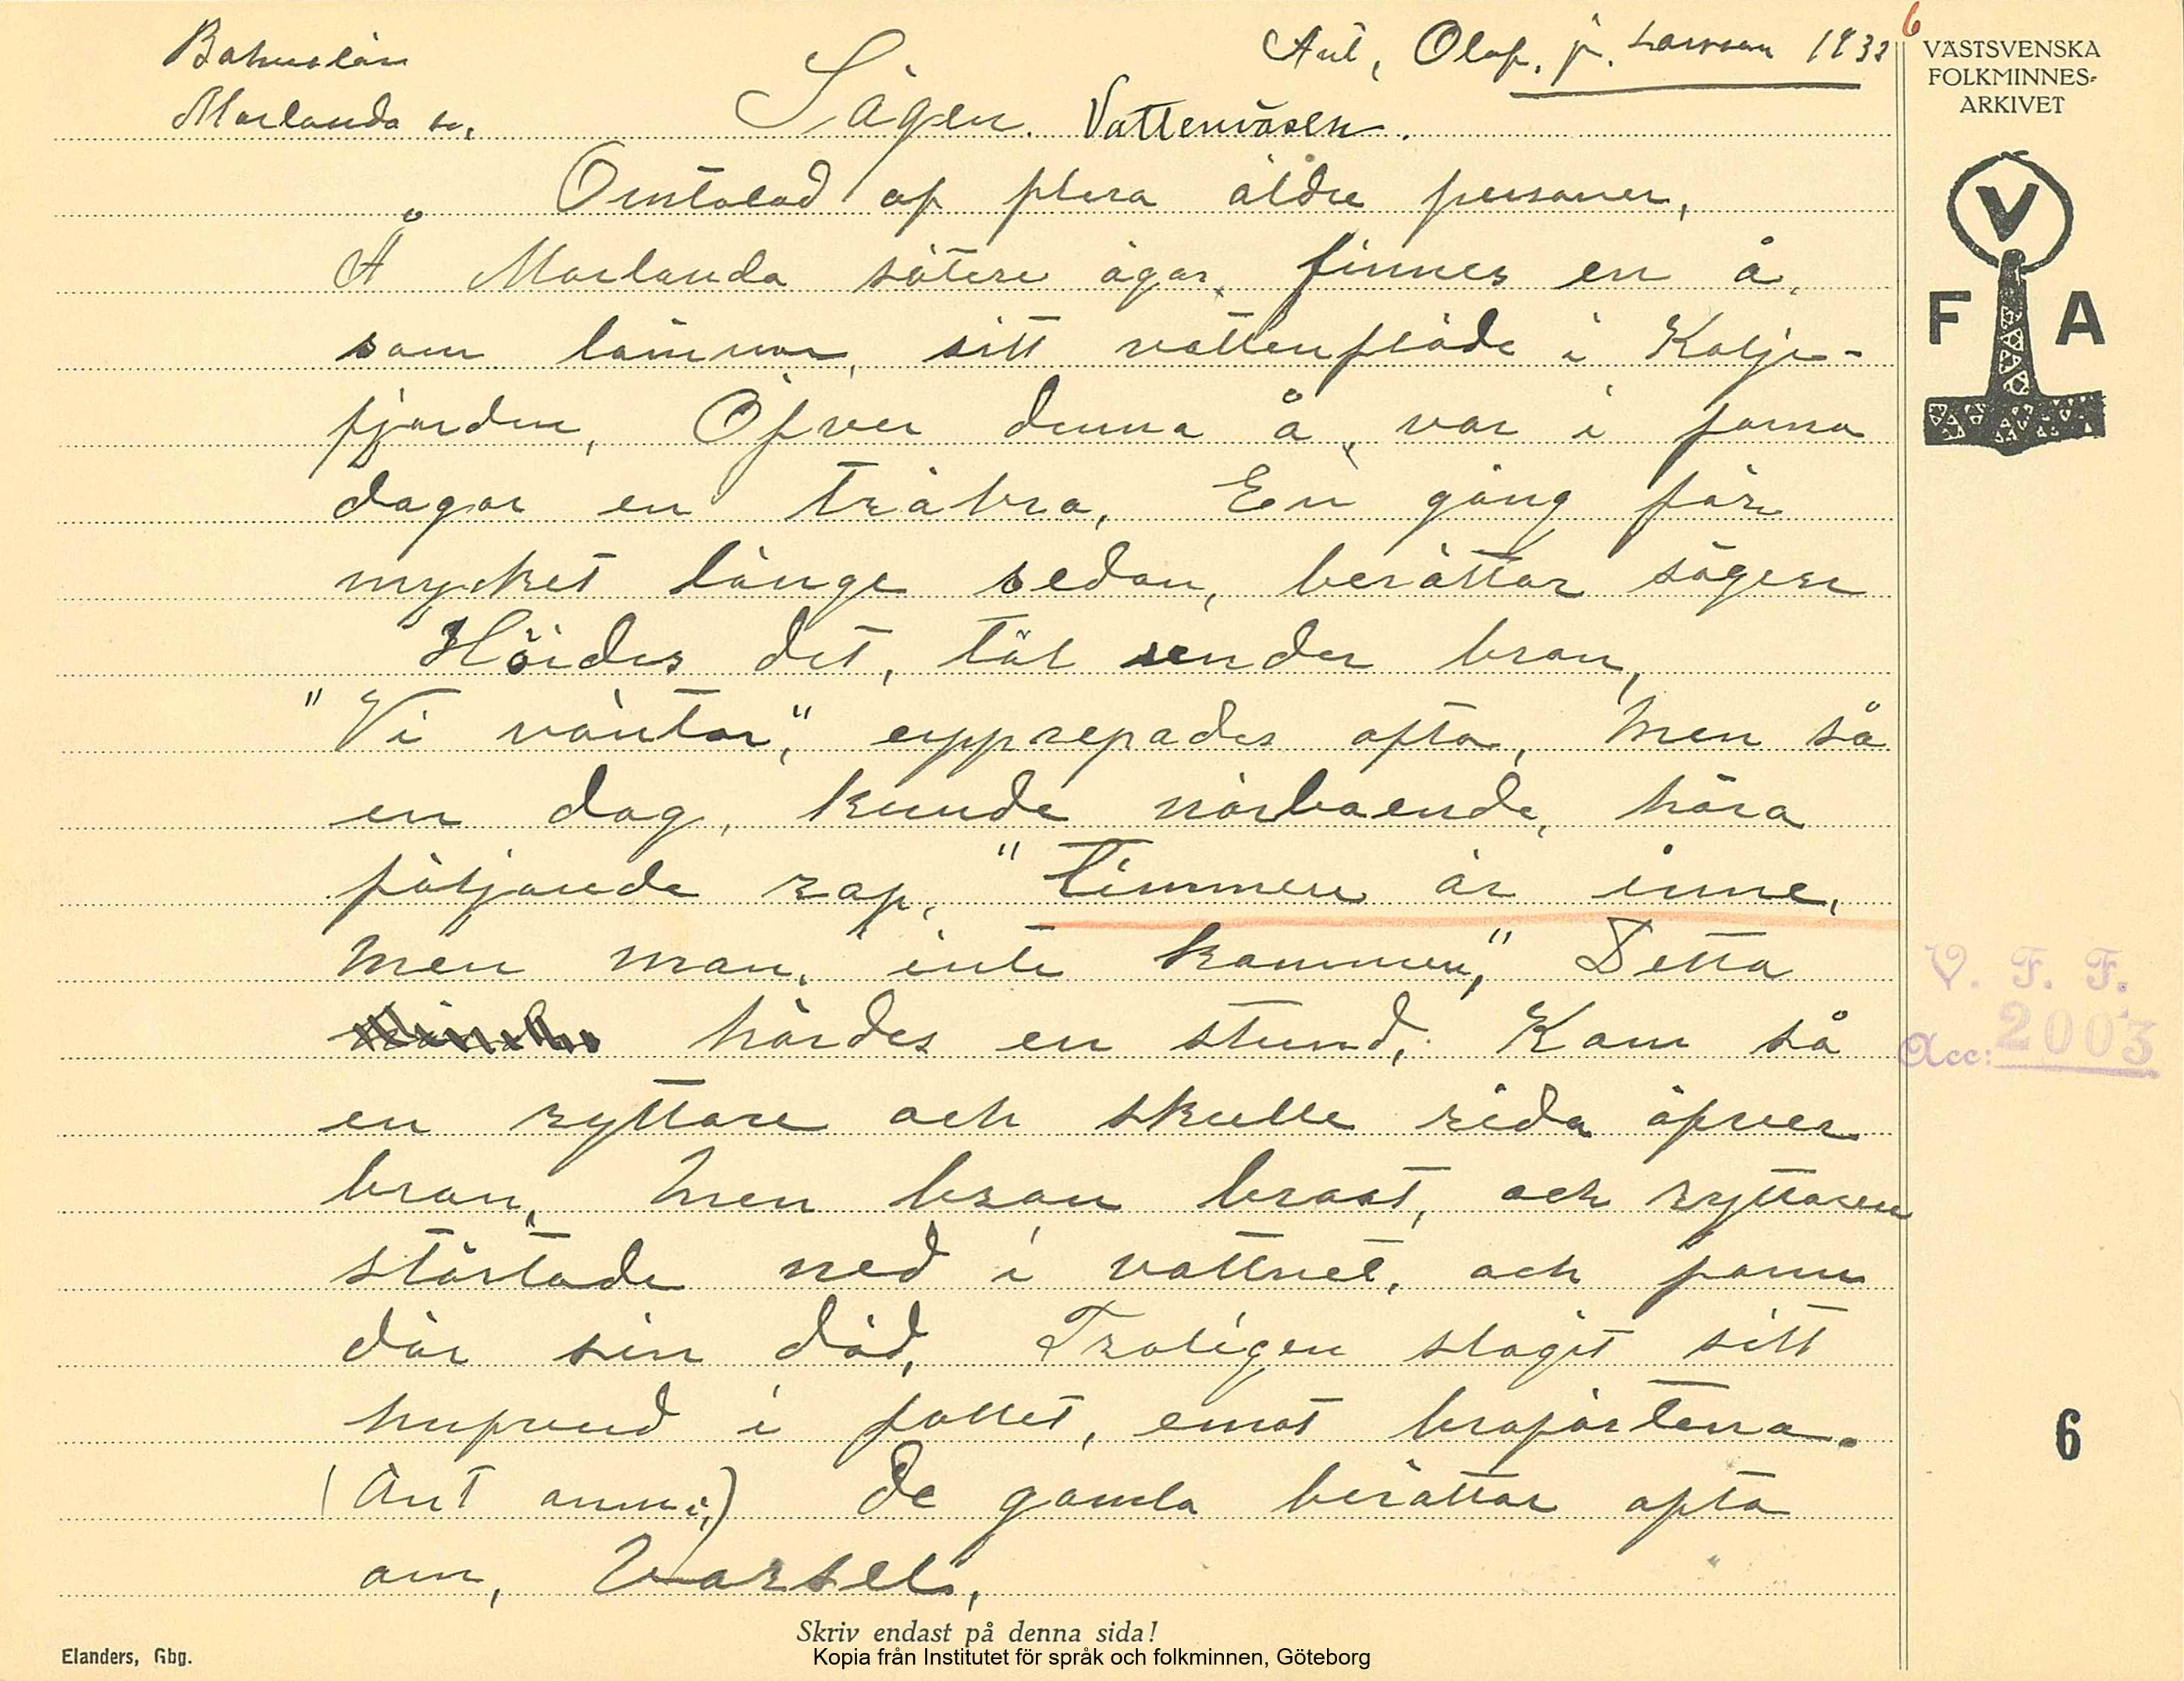 6
Bohuslän
Morlanda sn.
Ant, Olof. j. Larsson 1932
VÄSTSVENSKA
FOLKMINNES-
ARKIVET
Sägen. Vattenväsen.
Omtalad af flera äldre personer,
Å Morlanda säteri ägor, finnes en å,
som lämnar, sitt vattenflöde i Kolje-
fjorden, Öfver denna å, var i forna
dagar en träbro, En gång för
mycket länge sedan, berättar sägen
Hördes det, tal under bron,
"Vi väntar," upprepades ofta, Men så
en dag, kunde närboende, höra
följande rop, "Timmen är inne,
Men man, inte kommen," Detta
hördes en stund, Kom så
en ryttare och skulle rida öfver
bron, Men bron brast, och ryttaren
störtade ned i vattnet, och fann
där sin död, Troligen slagit sitt
hufvud i fallet, emot brofästena.
(Ant anm:) De gamla berättar ofta
om, Varsel,
V
F A
V. F. F.
Acc: 2003
6
Skriv endast på denna sida!
Elanders, Gbg.
Kopia från Institutet för språk och folkminnen, Göteborg